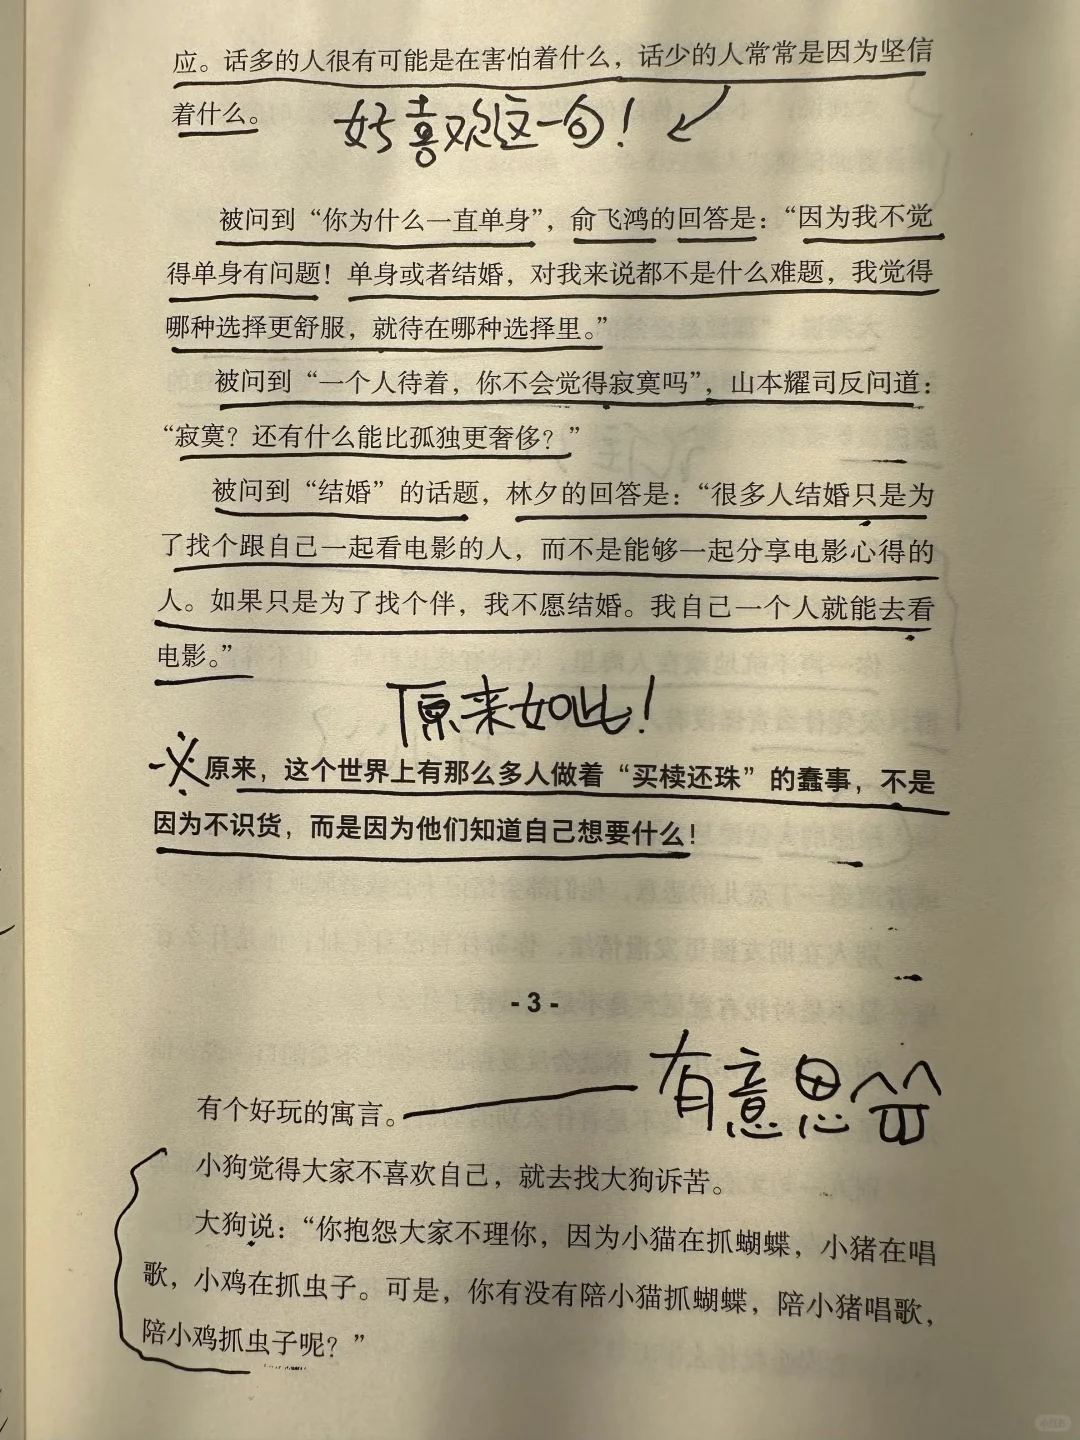 应。话多的人很有可能是在害怕着什么，话少的人常常是因为坚信
着什么。
好喜欢这一句！
被问到“你为什么一直单身”，俞飞鸿的回答是：“因为我不觉
得单身有问题！单身或者结婚，对我来说都不是什么难题，我觉得
哪种选择更舒服，就待在哪种选择里。”
被问到“一个人待着，你不会觉得寂寞吗”，山本耀司反问道：
“寂寞？还有什么能比孤独更奢侈？”
被问到“结婚”的话题，林夕的回答是：“很多人结婚只是为
了找个跟自己一起看电影的人，而不是能够一起分享电影心得的
人。如果只是为了找个伴，我不愿结婚。我自己一个人就能去看
电影。”
原来如此！
原来，这个世界上有那么多人做着“买椟还珠”的蠢事，不是
因为不识货，而是因为他们知道自己想要什么！
- 3 -
有意思
有个好玩的寓言。
小狗觉得大家不喜欢自己，就去找大狗诉苦。
大狗说：“你抱怨大家不理你，因为小猫在抓蝴蝶，小猪在唱
歌，小鸡在抓虫子。可是，你有没有陪小猫抓蝴蝶，陪小猪唱歌，
陪小鸡抓虫子呢？”